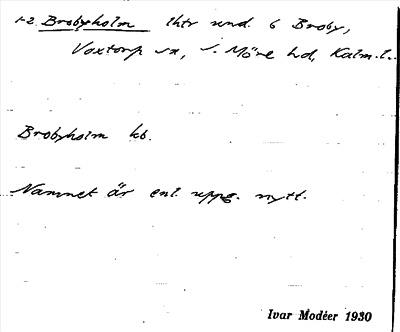 1-2. Brobyholm lhtr und. 6 Broby,
Voxtorp sn, S. Möre hd, Kalm.l.
Brobyholm kb.
Namnet är enl. uppg. nytt.
Ivar Modéer 1930